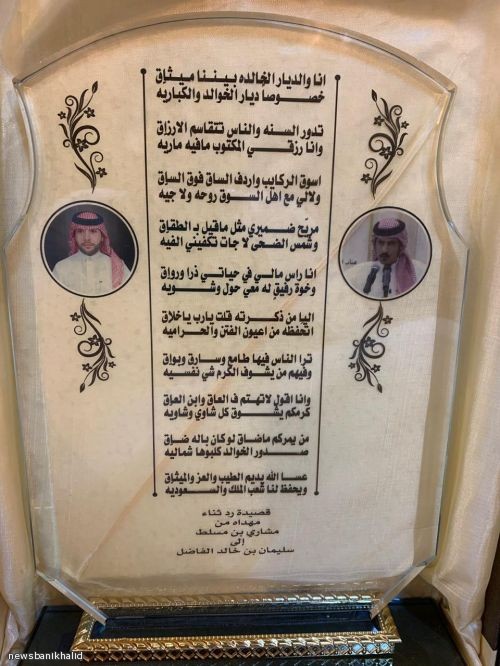 انا والديار الخالده بيننا ميثاق
خصوصا ديار الخوالد والكباريه
تدور السنه والناس تتقاسم الارزاق
وانا رزقي المكتوب مافيه ماريه
اسوق الركايب واردف الساق فوق الساق
ولالي مع اهل السوق روحه ولا جيه
مريّح ضميري مثل ماقيل بـ الطقاق
وشمس الضحى لا جات تكفيني الفيه
انا راس مالي في حياتي ذرا ورواق
وخوة رفيقٍ له معي حول وشويه
اليا من ذكرته قلت يارب ياخلاق
اتحفظه من اعيون الفتن والحراميه
ترا الناس فيها طامع وسارق وبواق
وفيهم من يشوف الكرم شي نفسيه
وانا اقول لاتهتم فـ العاق وابن العاق
كرمكم يشوق كل شاوي وشاويه
من يمركم ماضاق لو كان باله ضاق
صدور الخوالد كلبوها شماليه
عسا الله يديم الطيب والعز والميثاق
ويحفظ لنا شعب الملك والسعوديه
قصيدة رد ثناء
مهداه من
مشاري بن مسلط
إلى
سليمان بن خالد الفاضل
newsbanikhalid